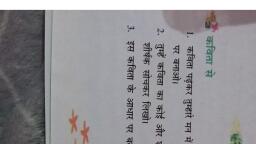 कविता से
1. कविता पढ़कर तुम्हारे मन में
पर बनाओ।
2. तुम्हें कविता का कोई और
शीर्षक सोचकर लिखो।
3. इस कविता के आधार पर